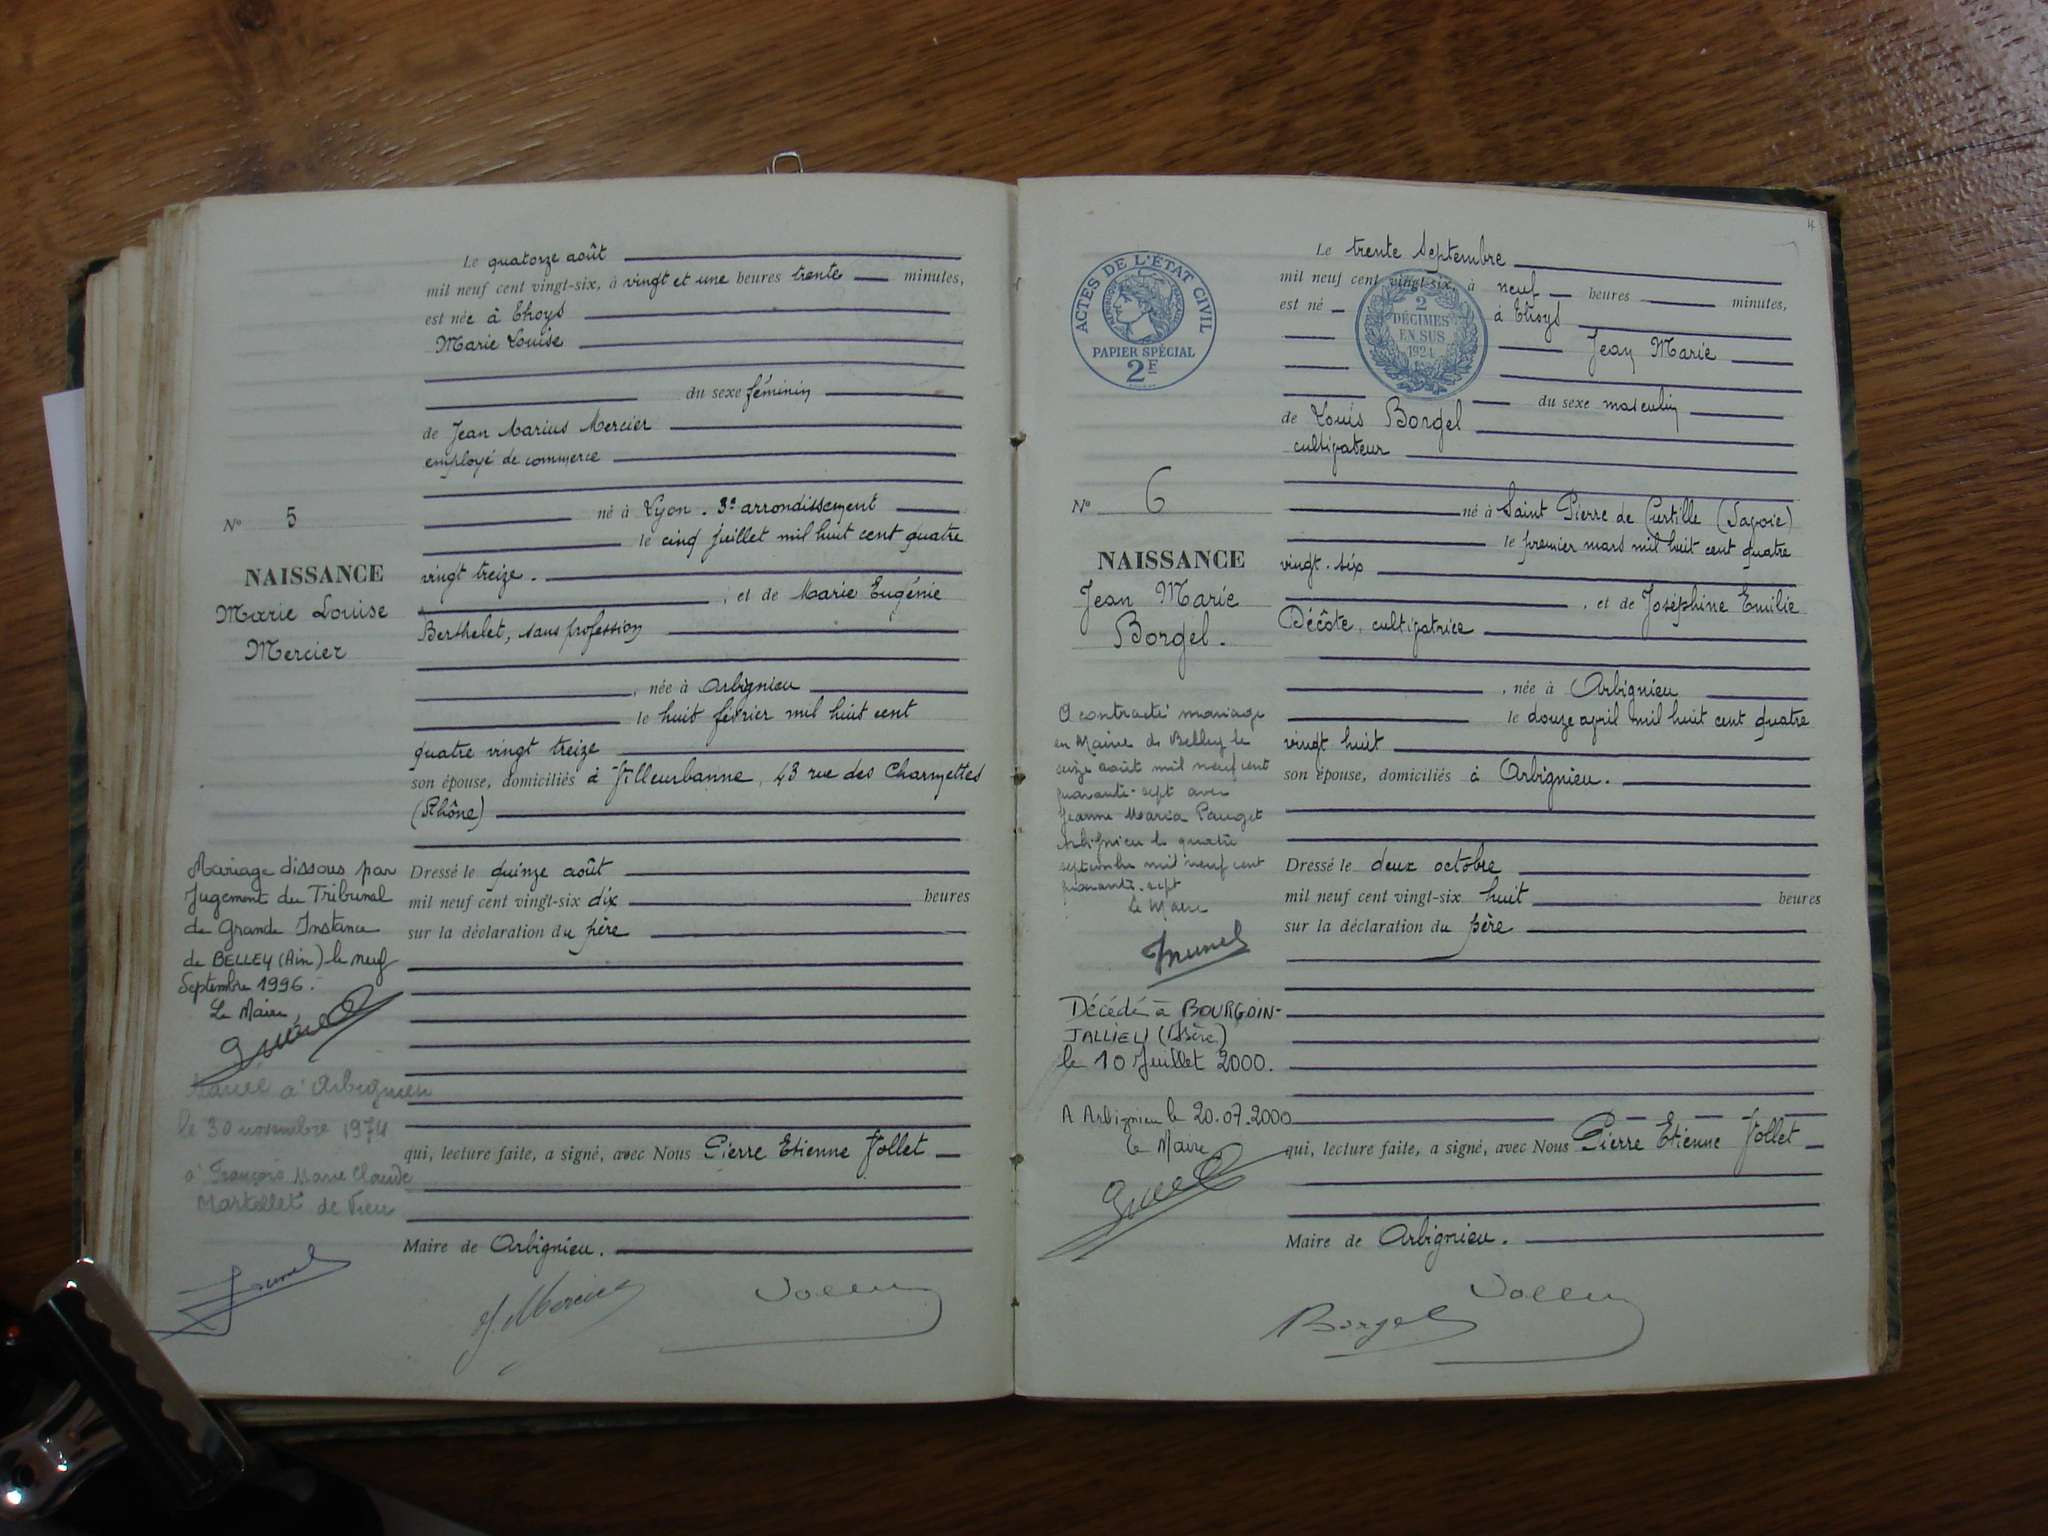 Le quatorze août
mil neuf cent vingt-six, à vingt et une heures trente minutes,
est née à Thoys
Marie Louise
du sexe féminin
de Jean Marius Mercier
employé de commerce
né à Lyon. 3e arrondissement
le cinq juillet mil huit cent quatre
vingt treize.
, et de Marie Eugénie
Berthelet, sans profession
, née à Arbignieu
le huit février mil huit cent
quatre vingt treize
son épouse, domiciliés à Villeurbanne, 43 rue des Charmettes
(Rhône)
Dressé le quinze août
mil neuf cent vingt-six dix heures
sur la déclaration du père
qui, lecture faite, a signé, avec Nous Pierre Etienne Vollet
Maire de Arbignieu.
J. Mercier
N° 5
NAISSANCE
Marie Louise
Mercier
Mariage dissous par
Jugement du Tribunal
de Grande Instance
de BELLEY (Ain) le neuf
Septembre 1996.
Le Maire,
Mariée à Arbignieu
le 30 novembre 1974
à François Marie Claude
Martellet de Vieu
4
ACTES DE L'ÉTAT CIVIL
PAPIER SPÉCIAL
2F
2
DÉCIMES
EN SUS
1924
Le trente Septembre
mil neuf cent vingt-six, à neuf heures minutes,
est né à Thoys
Jean Marie
du sexe masculin
de Louis Borgel
cultivateur
né à Saint Pierre de Curtille (Savoie)
le premier mars mil huit cent quatre
vingt-six
, et de Joséphine Emilie
Décôte, cultivatrice
, née à Arbignieu
le douze avril mil huit cent quatre
vingt huit
son épouse, domiciliés à Arbignieu.
Dressé le deux octobre
mil neuf cent vingt-six huit heures
sur la déclaration du père
qui, lecture faite, a signé, avec Nous Pierre Etienne Vollet
Maire de Arbignieu.
Borgel
N° 6
NAISSANCE
Jean Marie
Borgel.
A contracté mariage
en Mairie de Belley le
seize août mil neuf cent
quarante-sept avec
Jeanne Maria Pauget
Arbignieu le quatre
septembre mil neuf cent
quarante-sept
Le Maire
Décédé à BOURGOIN-
JALLIEU (Isère)
le 10 Juillet 2000.
A Arbignieu le 20.07.2000
Le Maire